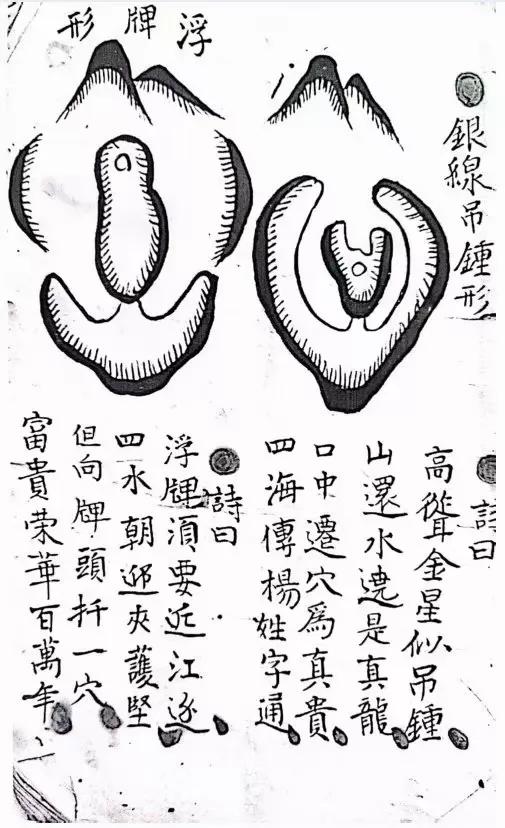 銀線吊鍾形
詩曰
高聳金星似吊鍾
山還水遶是真龍
口中遷穴為真貴
四海傳楊姓字通
浮牌形
詩曰
浮牌須要近江边
四水朝迎夾護堅
但向牌頭扦一穴
富貴荣華百萬年